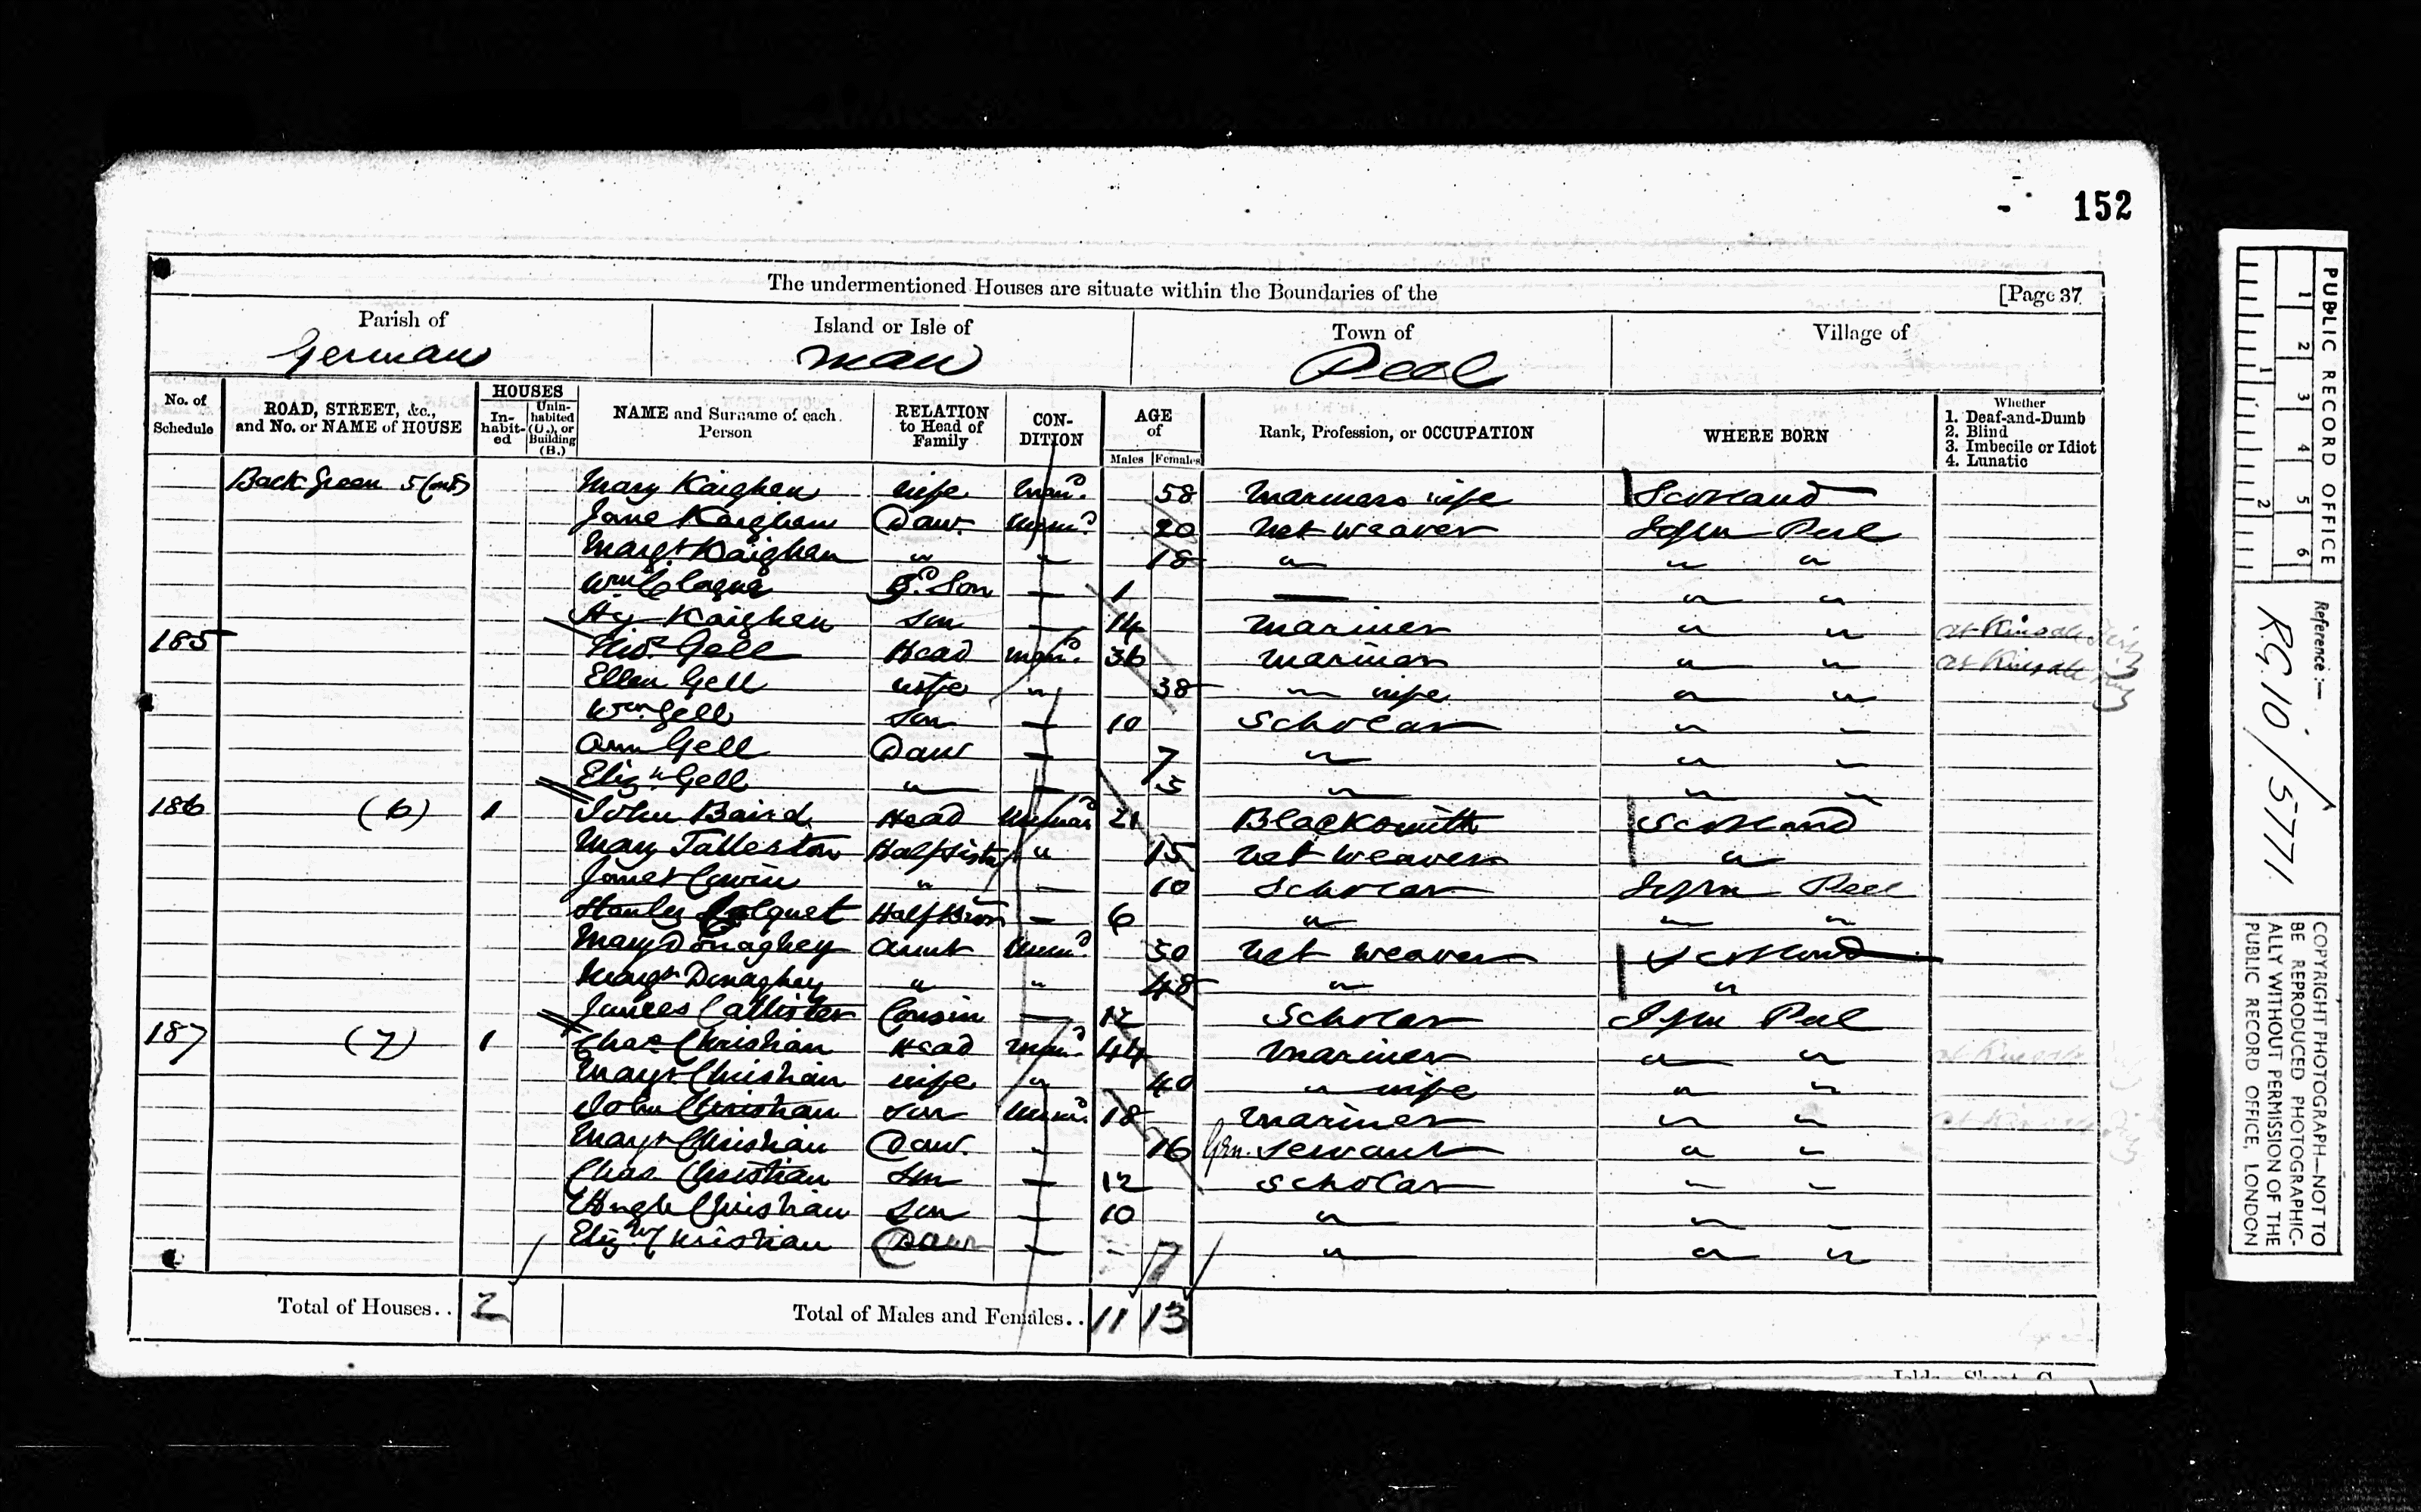 152
The undermentioned Houses are situate within the Boundaries of the [Page 37
Parish of Island or Isle of Town of Village of
German Man Peel
No. of Schedule ROAD, STREET, &c., and No. or NAME of HOUSE HOUSES Inhabited Uninhabited (U.), or Building (B.) NAME and Surname of each Person RELATION to Head of Family CONDITION AGE of Males Females Rank, Profession, or OCCUPATION WHERE BORN Whether 1. Deaf-and-Dumb 2. Blind 3. Imbecile or Idiot 4. Lunatic
Back Green 5 Mary Kaighen wife Mard. 58 Mariners wife Scotland
Jane Kaighen Daur. Unmd. 20 Net Weaver Peel
Margt Kaighen " " 18 " " "
Wm Clague Gd. Son — 1 — " "
Hy Kaighen Son — 14 Mariner " " at Kinsale
185 Thos. Gell Head Mard. 36 Mariner " " at Kinsale
Ellen Gell wife " 38 " wife " "
Wm. Gell Son — 10 Scholar " "
Ann Gell Daur — 7 " " "
Elizh Gell " — 5 " " "
186 (6) 1 John Baird Head Unmard 21 Blacksmith Scotland
Mary Halfsister " 15 Net Weaver "
" — 10 Scholar Peel
Stanley Half Bror — 6 " " "
Mary Donaghey Aunt Unmd. 50 Net Weaver Scotland
Margt Donaghey " " 48 " "
James Callister Cousin — 12 Scholar Peel
187 (7) 1 Chas. Christian Head Mard. 44 Mariner " "
Margt Christian wife " 40 " wife " "
John Christian Son Unmd. 18 Mariner " "
Margt Christian Daur. " 16 Servant " "
Chas. Christian Son — 12 Scholar " "
Hugh Christian Son — 10 " " "
Elizth Christian Daur — - 7 " " "
Total of Houses.. 2 Total of Males and Females.. 11 13
PUBLIC RECORD OFFICE
1 2 3 4 5 6
1 2
Reference:—
RG 10 / 5771
COPYRIGHT PHOTOGRAPH—NOT TO
BE REPRODUCED PHOTOGRAPHIC-
ALLY WITHOUT PERMISSION OF THE
PUBLIC RECORD OFFICE, LONDON